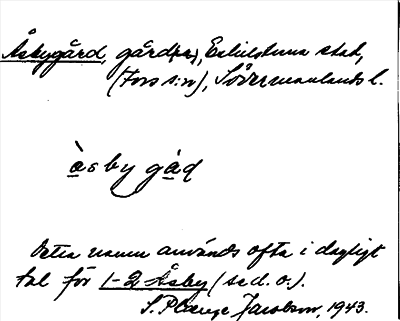 Åsbygård, gård(ar), Eskilstuna stad,
(Fors s:n), Södermanlands l.
àsby gàd
Detta namn används ofta i dagligt
tal för 1-2 Åsby (se d. o.).
S. Jacobson, 1943.